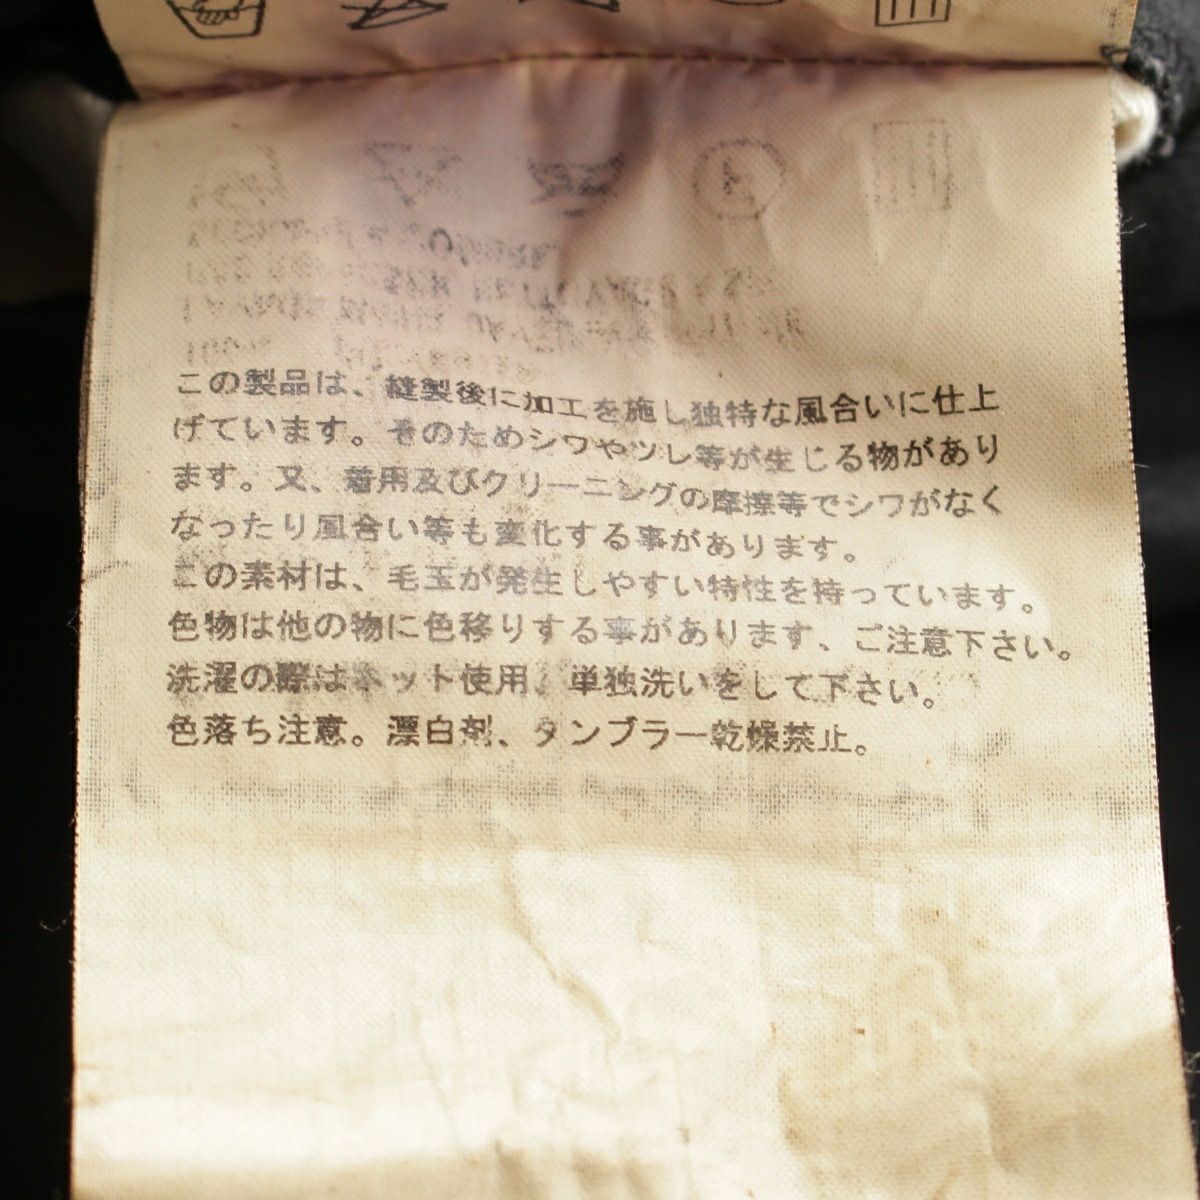 この製品は、縫製後に加工を施し独特な風合いに仕上
げています。そのためシワやツレ等が生じる物があり
ます。又、着用及びクリーニングの摩擦等でシワがなく
なったり風合い等も変化する事があります。
この素材は、毛玉が発生しやすい特性を持っています。
色物は他の物に色移りする事があります、ご注意下さい。
洗濯の際はネット使用、単独洗いをして下さい。
色落ち注意。漂白剤、タンブラー乾燥禁止。